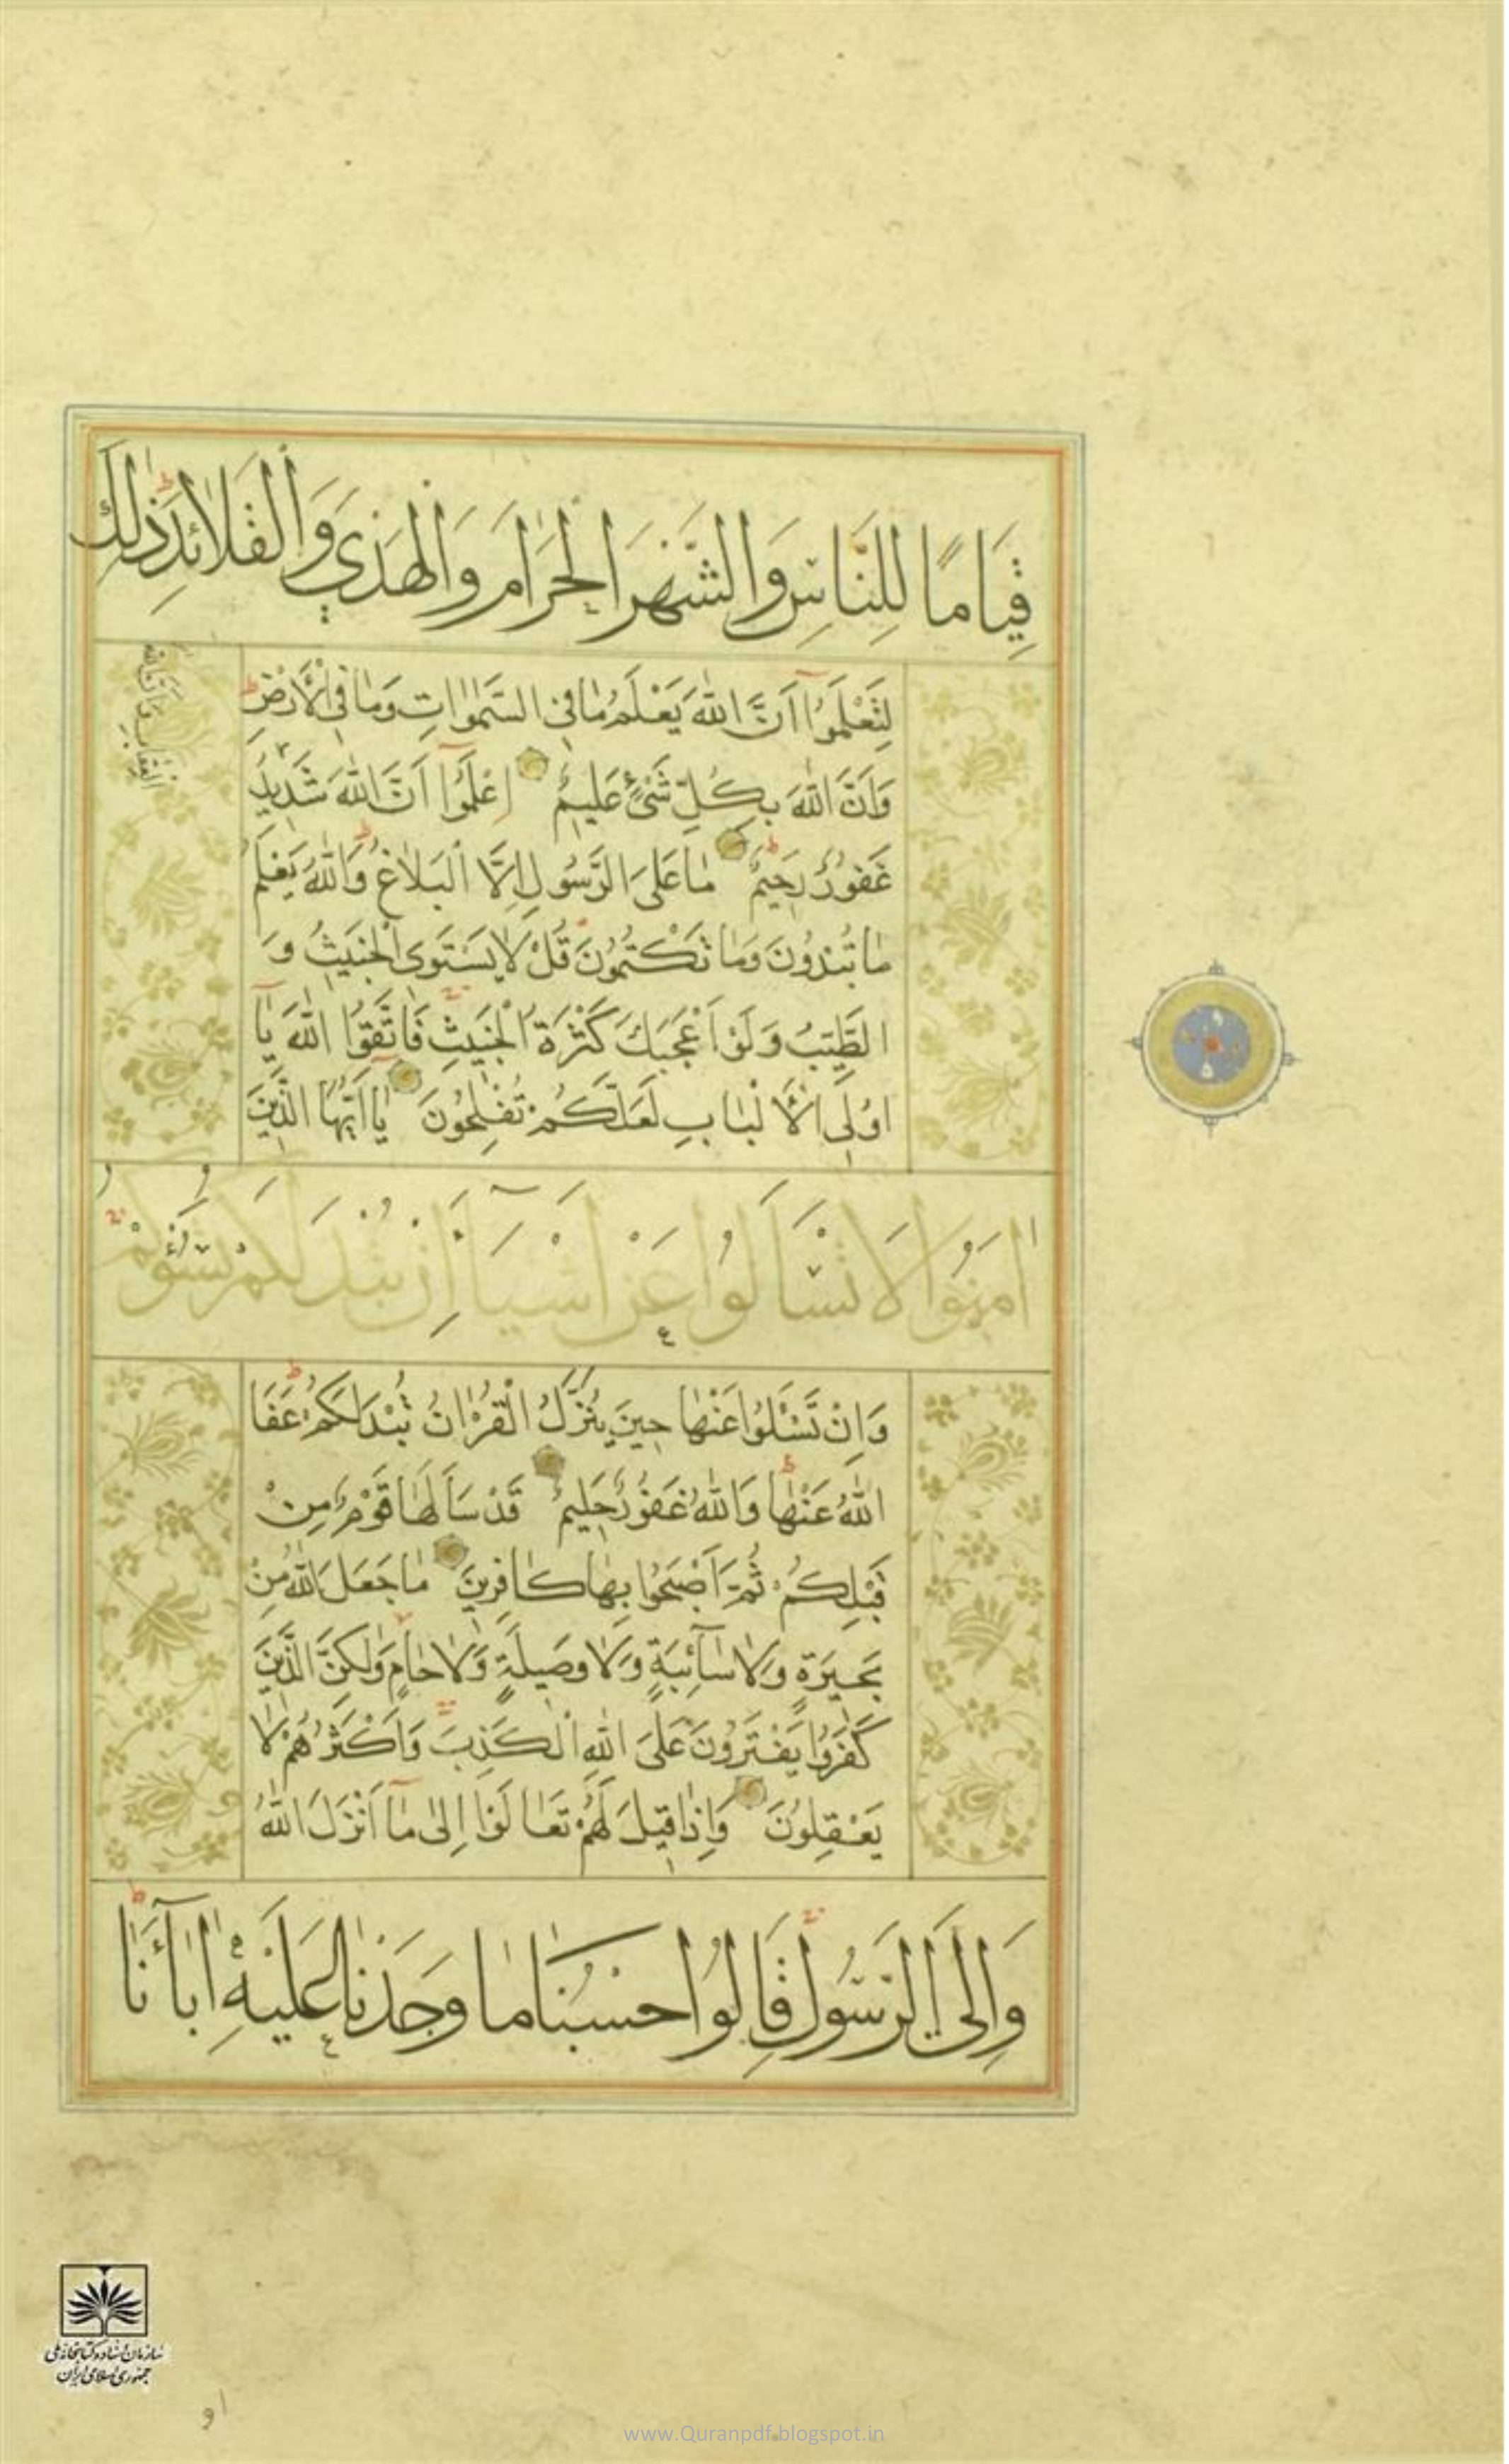 قِيَامًا لِلنَّاسِ وَالشَّهْرَ الْحَرَامَ وَالْهَدْيَ وَالْقَلَائِدَ ذٰلِكَ
لِتَعْلَمُوآ اَنَّ اللّٰهَ يَعْلَمُ مَا فِي السَّمٰوَاتِ وَمَا فِي الْاَرْضِ
وَاَنَّ اللّٰهَ بِكُلِّ شَيْءٍ عَلِيمٌ اِعْلَمُوآ اَنَّ اللّٰهَ شَدِيدُ
الْعِقَابِ وَاَنَّ اللّٰهَ
غَفُورٌ رَحِيمٌ مَا عَلَى الرَّسُولِ اِلَّا الْبَلَاغُ وَاللّٰهُ يَعْلَمُ
مَا تُبْدُونَ وَمَا تَكْتُمُونَ قُلْ لَا يَسْتَوِى الْخَبِيثُ وَ
الطَّيِّبُ وَلَوْ اَعْجَبَكَ كَثْرَةُ الْخَبِيثِ فَاتَّقُوا اللّٰهَ يَآ
اُولِى الْاَلْبَابِ لَعَلَّكُمْ تُفْلِحُونَ يَا اَيُّهَا الَّذِينَ
اٰمَنُوا لَا تَسْاَلُوا عَنْ اَشْيَآءَ اِنْ تُبْدَ لَكُمْ تَسُؤْكُمْ
وَاِنْ تَسْـَٔلُوا عَنْهَا حِينَ يُنَزَّلُ الْقُرْاٰنُ تُبْدَ لَكُمْ عَفَا
اللّٰهُ عَنْهَا وَاللّٰهُ غَفُورٌ حَلِيمٌ قَدْ سَاَلَهَا قَوْمٌ مِنْ
قَبْلِكُمْ ثُمَّ اَصْبَحُوا بِهَا كَافِرِينَ مَا جَعَلَ اللّٰهُ مِنْ
بَحِيرَةٍ وَلَا سَآئِبَةٍ وَلَا وَصِيلَةٍ وَلَا حَامٍ وَلٰكِنَّ الَّذِينَ
كَفَرُوا يَفْتَرُونَ عَلَى اللّٰهِ الْكَذِبَ وَاَكْثَرُهُمْ لَا
يَعْقِلُونَ وَاِذَا قِيلَ لَهُمْ تَعَالَوْا اِلٰى مَآ اَنْزَلَ اللّٰهُ
وَاِلَى الرَّسُولِ قَالُوا حَسْبُنَا مَا وَجَدْنَا عَلَيْهِ اٰبَآءَنَا
سازمان اسناد و کتابخانه ملی
جمهوری اسلامی ایران
او
www.Quranpdf.blogspot.in